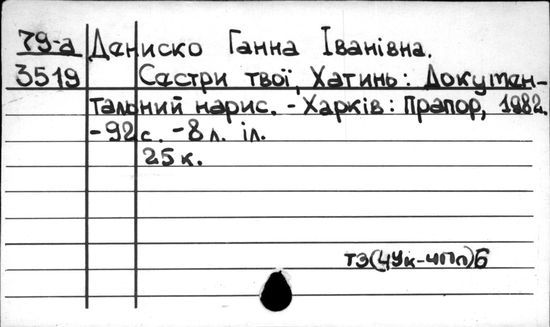 79-а Дениско Ганна Іванівна.
3519 Сестри твої, Хатинь: Докумен-
тальний нарис. - Харків: Прапор, 1982.
- 92 с. - 8 л. іл.
25 к.
ТЗ(4Ук-4Пл)6